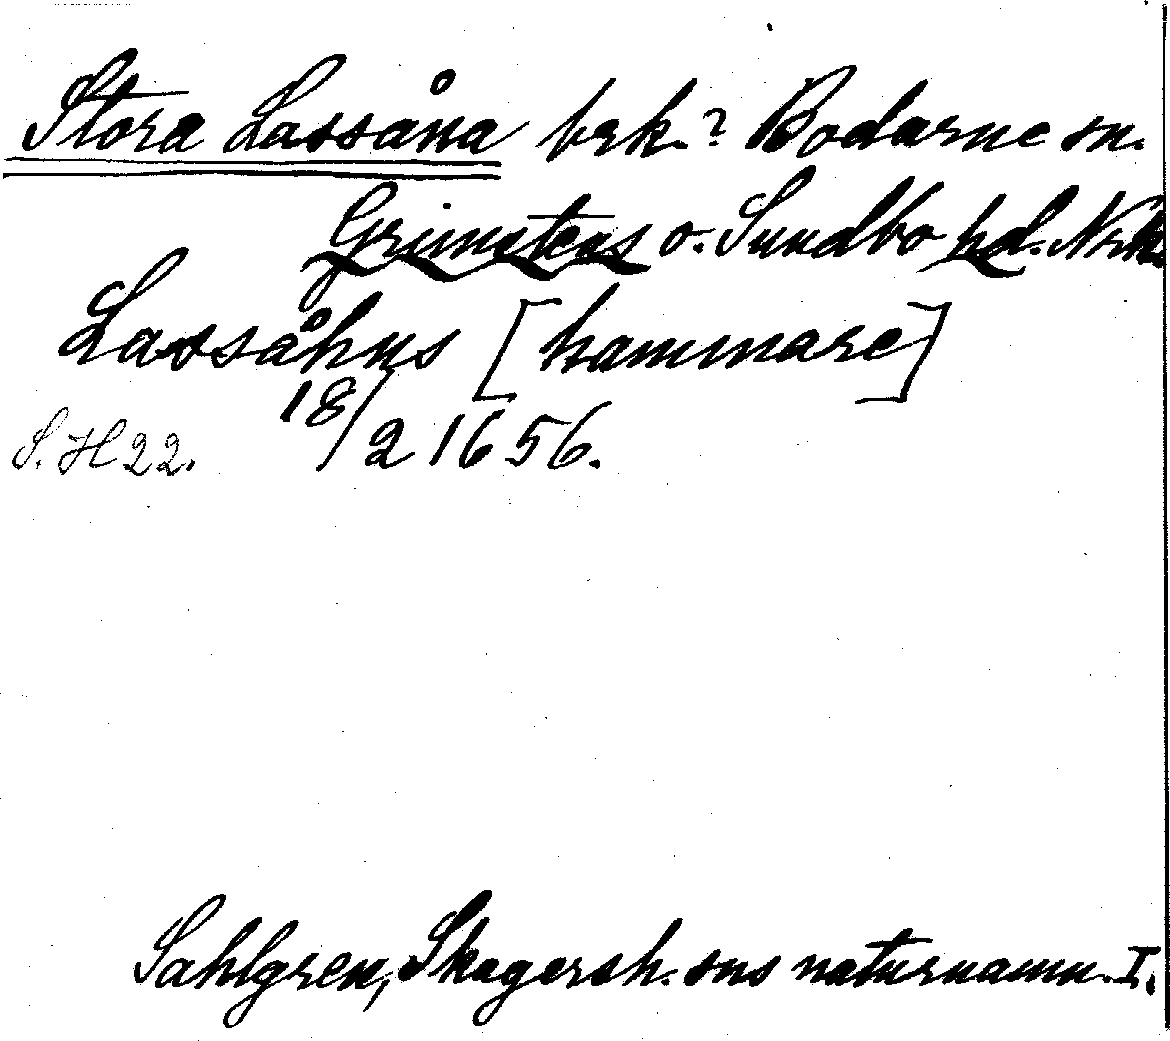 Stora Lassåna brk.? Bodarne sn.
Grimstens o. Sundbo hd. Nrke
Lassåhus [hammare]
S. H 22. 18/2 1656.
Sahlgren, Skagersh. sns naturnamn. I.